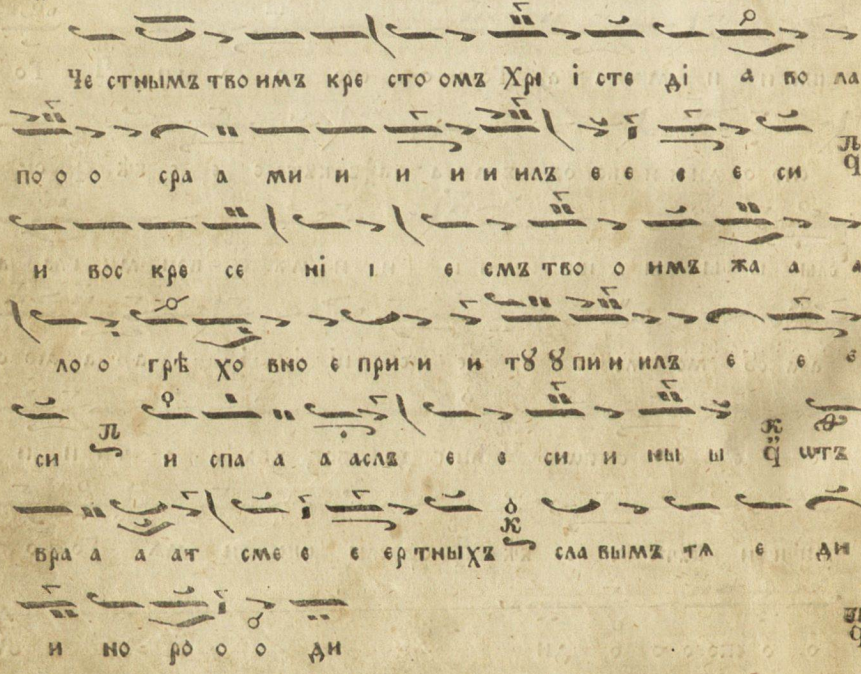 Че стнымъ тво имъ кре сто омъ Хри і сте ді а во ла
по о о сра а ми и и и и илъ е е е е си
и вос кре се ні і е емъ тво о имъ жа а а
ло о грѣ хо вно е при и и тꙋ ꙋ пи и илъ е е е
си и спа а а аслъ е е си и ны ы ѡтъ
вра а а ат сме е е ер тныхъ сла вымъ тѧ е ди
и но ро о о ди